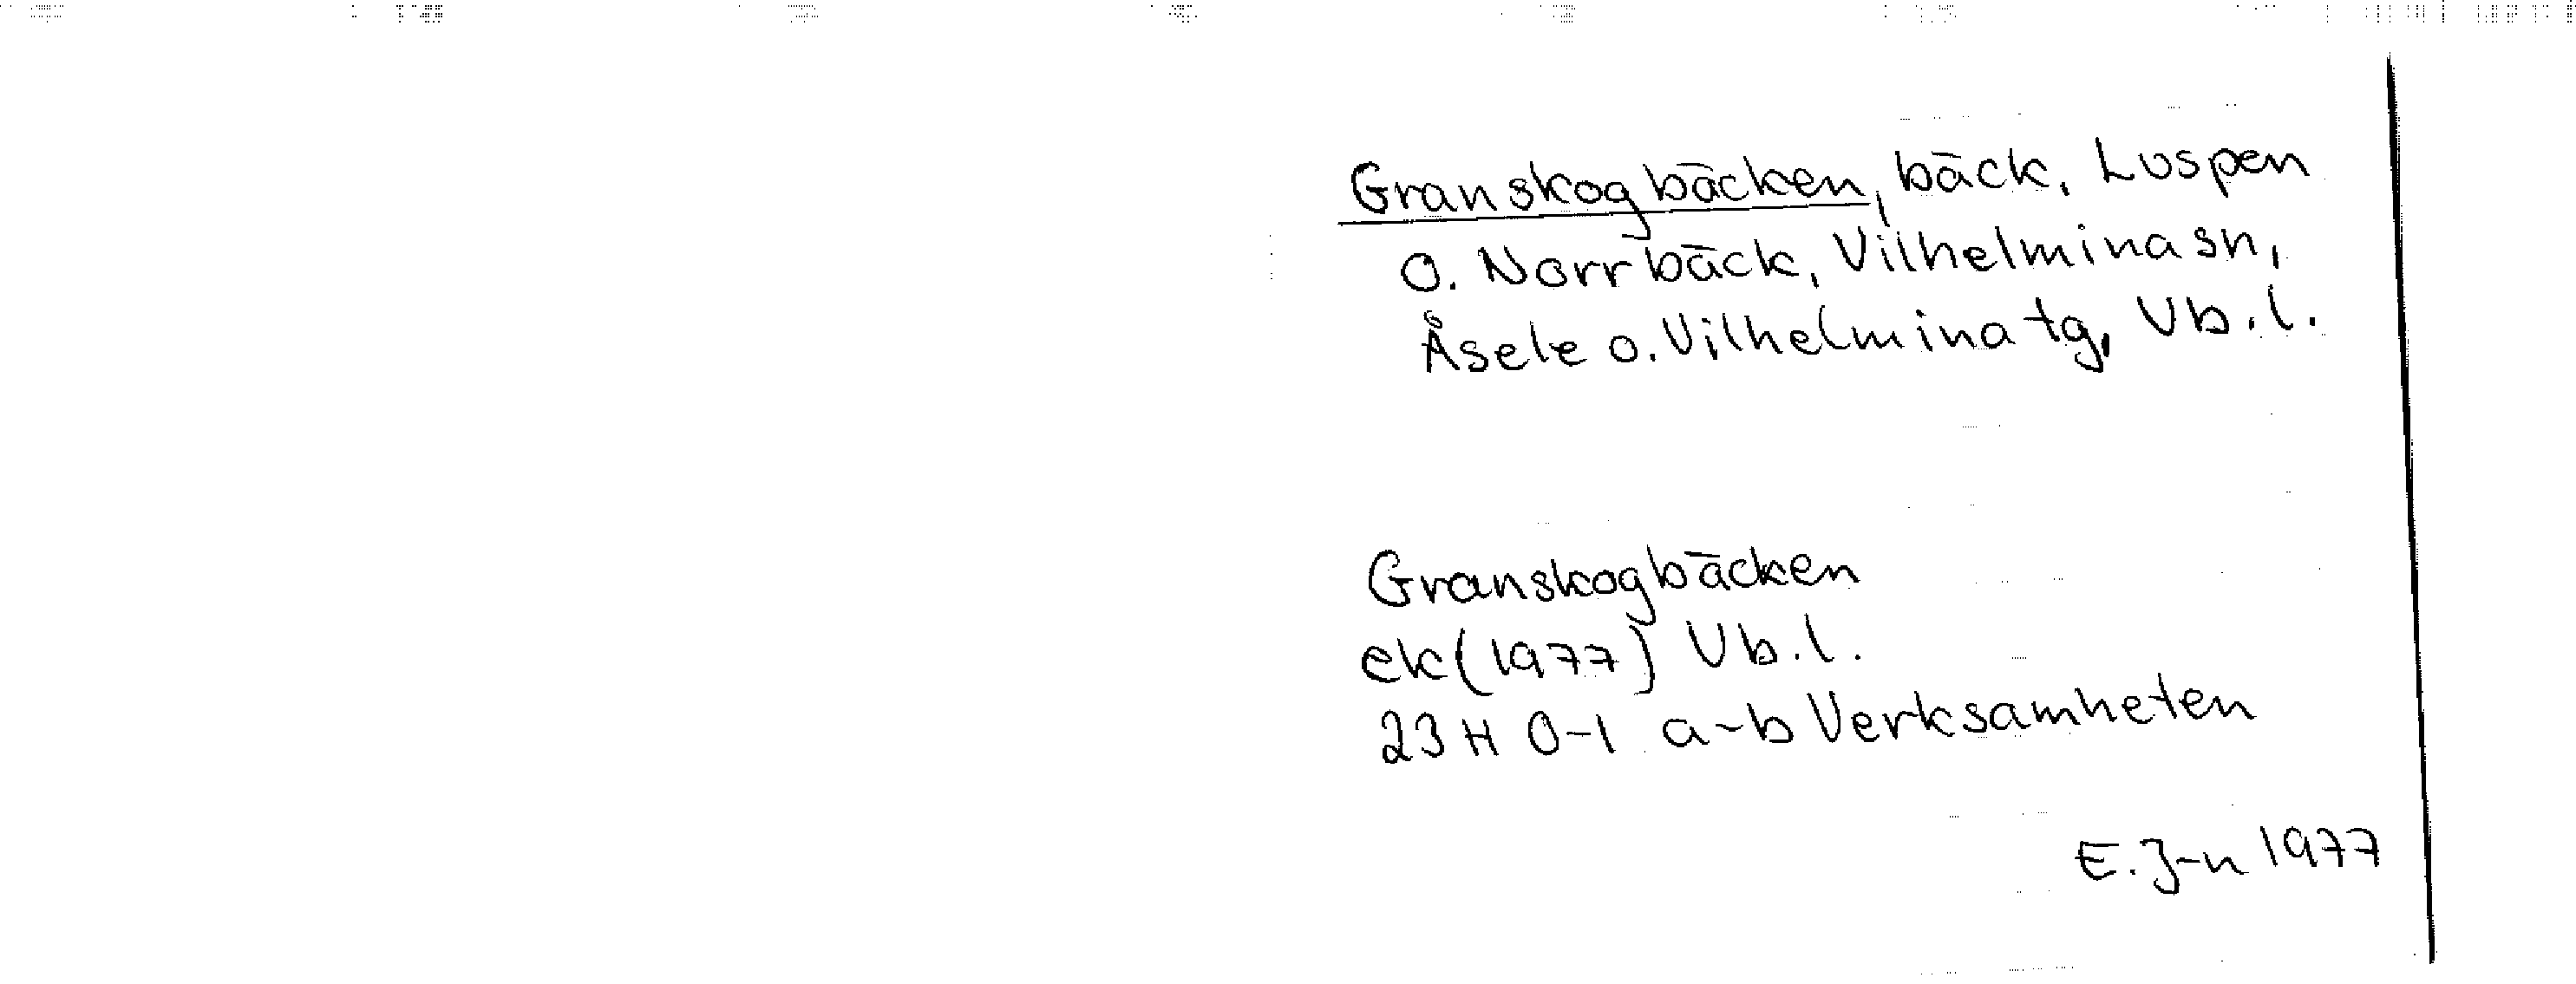 Granskogbäcken, bäck, Luspen
o. Norrbäck, Vilhelmina sn,
Åsele o. Vilhelmina tg, Vb.l.
Granskogbäcken
ek (1977) Vb.l.
23 H 0-1 a-b Verksamheten
E. J-n 1977